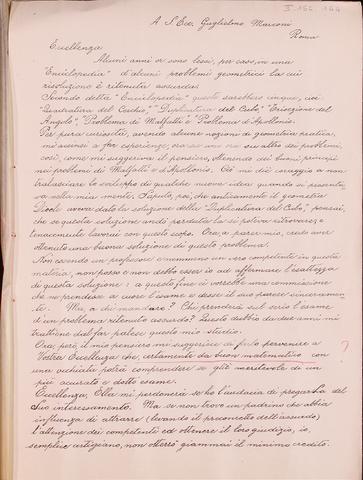 A S. Ecc. Guglielmo Marconi
Roma
Eccellenza
Alcuni anni or sono lessi, per caso, in una
"Enciclopedia" d'alcuni problemi geometrici la cui
risoluzione è ritenuta assurda.
Secondo detta "Enciclopedia" questi sarebbero cinque, cioè
"Quadratura del Cerchio", "Duplicatura del Cubo," "Trisezione del
Angolo", "Problema di Malfatti" e "Problema d'Apollonio".
Per pura curiosità, avendo alcune nozioni di geometria pratica,
mi accinsi a far esperienze, ora su uno ora su altro dei problemi,
così, come mi suggeriva il pensiero, ottenendo dei buoni principi
nei problemi di Malfatti e d'Apollonio. Ciò mi diè coraggio a non
tralasciare lo sviluppo di qualche nuova idea quando si presentava
nella mia mente. Saputo, poi, che anticamente il geometra
Diocle aveva dato la soluzione della "Duplicatura del Cubo," pensai,
che se questa soluzione andò perduta la si poteva ritrovare, e
tenacemente lavorai con questo scopo. Ora, a parer mio, credo aver
ottenuto una buona soluzione di questo problema.
Non essendo un professore e nemmeno un vero competente in questa
materia, non posso e non debbo esser io ad affermare l'esattezza
di questa soluzione: a questo fine ci vorrebbe una commissione
che ne prendesse a cuore l'esame e desse il suo parere sinceramente.
Ma, a chi mandare? Chi prenderà sul serio l'esame
d'un problema ritenuto assurdo? Questo dubbio da due anni mi
trattiene dal far palese questo mio studio.
Ora, però, il mio pensiero mi suggerisce di farlo pervenire a
Vostra Eccellenza che, certamente da buon matematico con
una occhiata potrà comprendere se gliè meritevole di un
più accurato e dotto esame.
Eccellenza, Ella mi perdonerà se ho l'audacia di pregarla del
Suo interessamento. Ma se non trovo un padrino che abbia
influenza di attrarre (levando il preconcetto dell'assurdo)
l'attenzione dei competenti ed ottenere il loro giudizio, io,
semplice artigiano, non otterrò giammai il minimo credito.